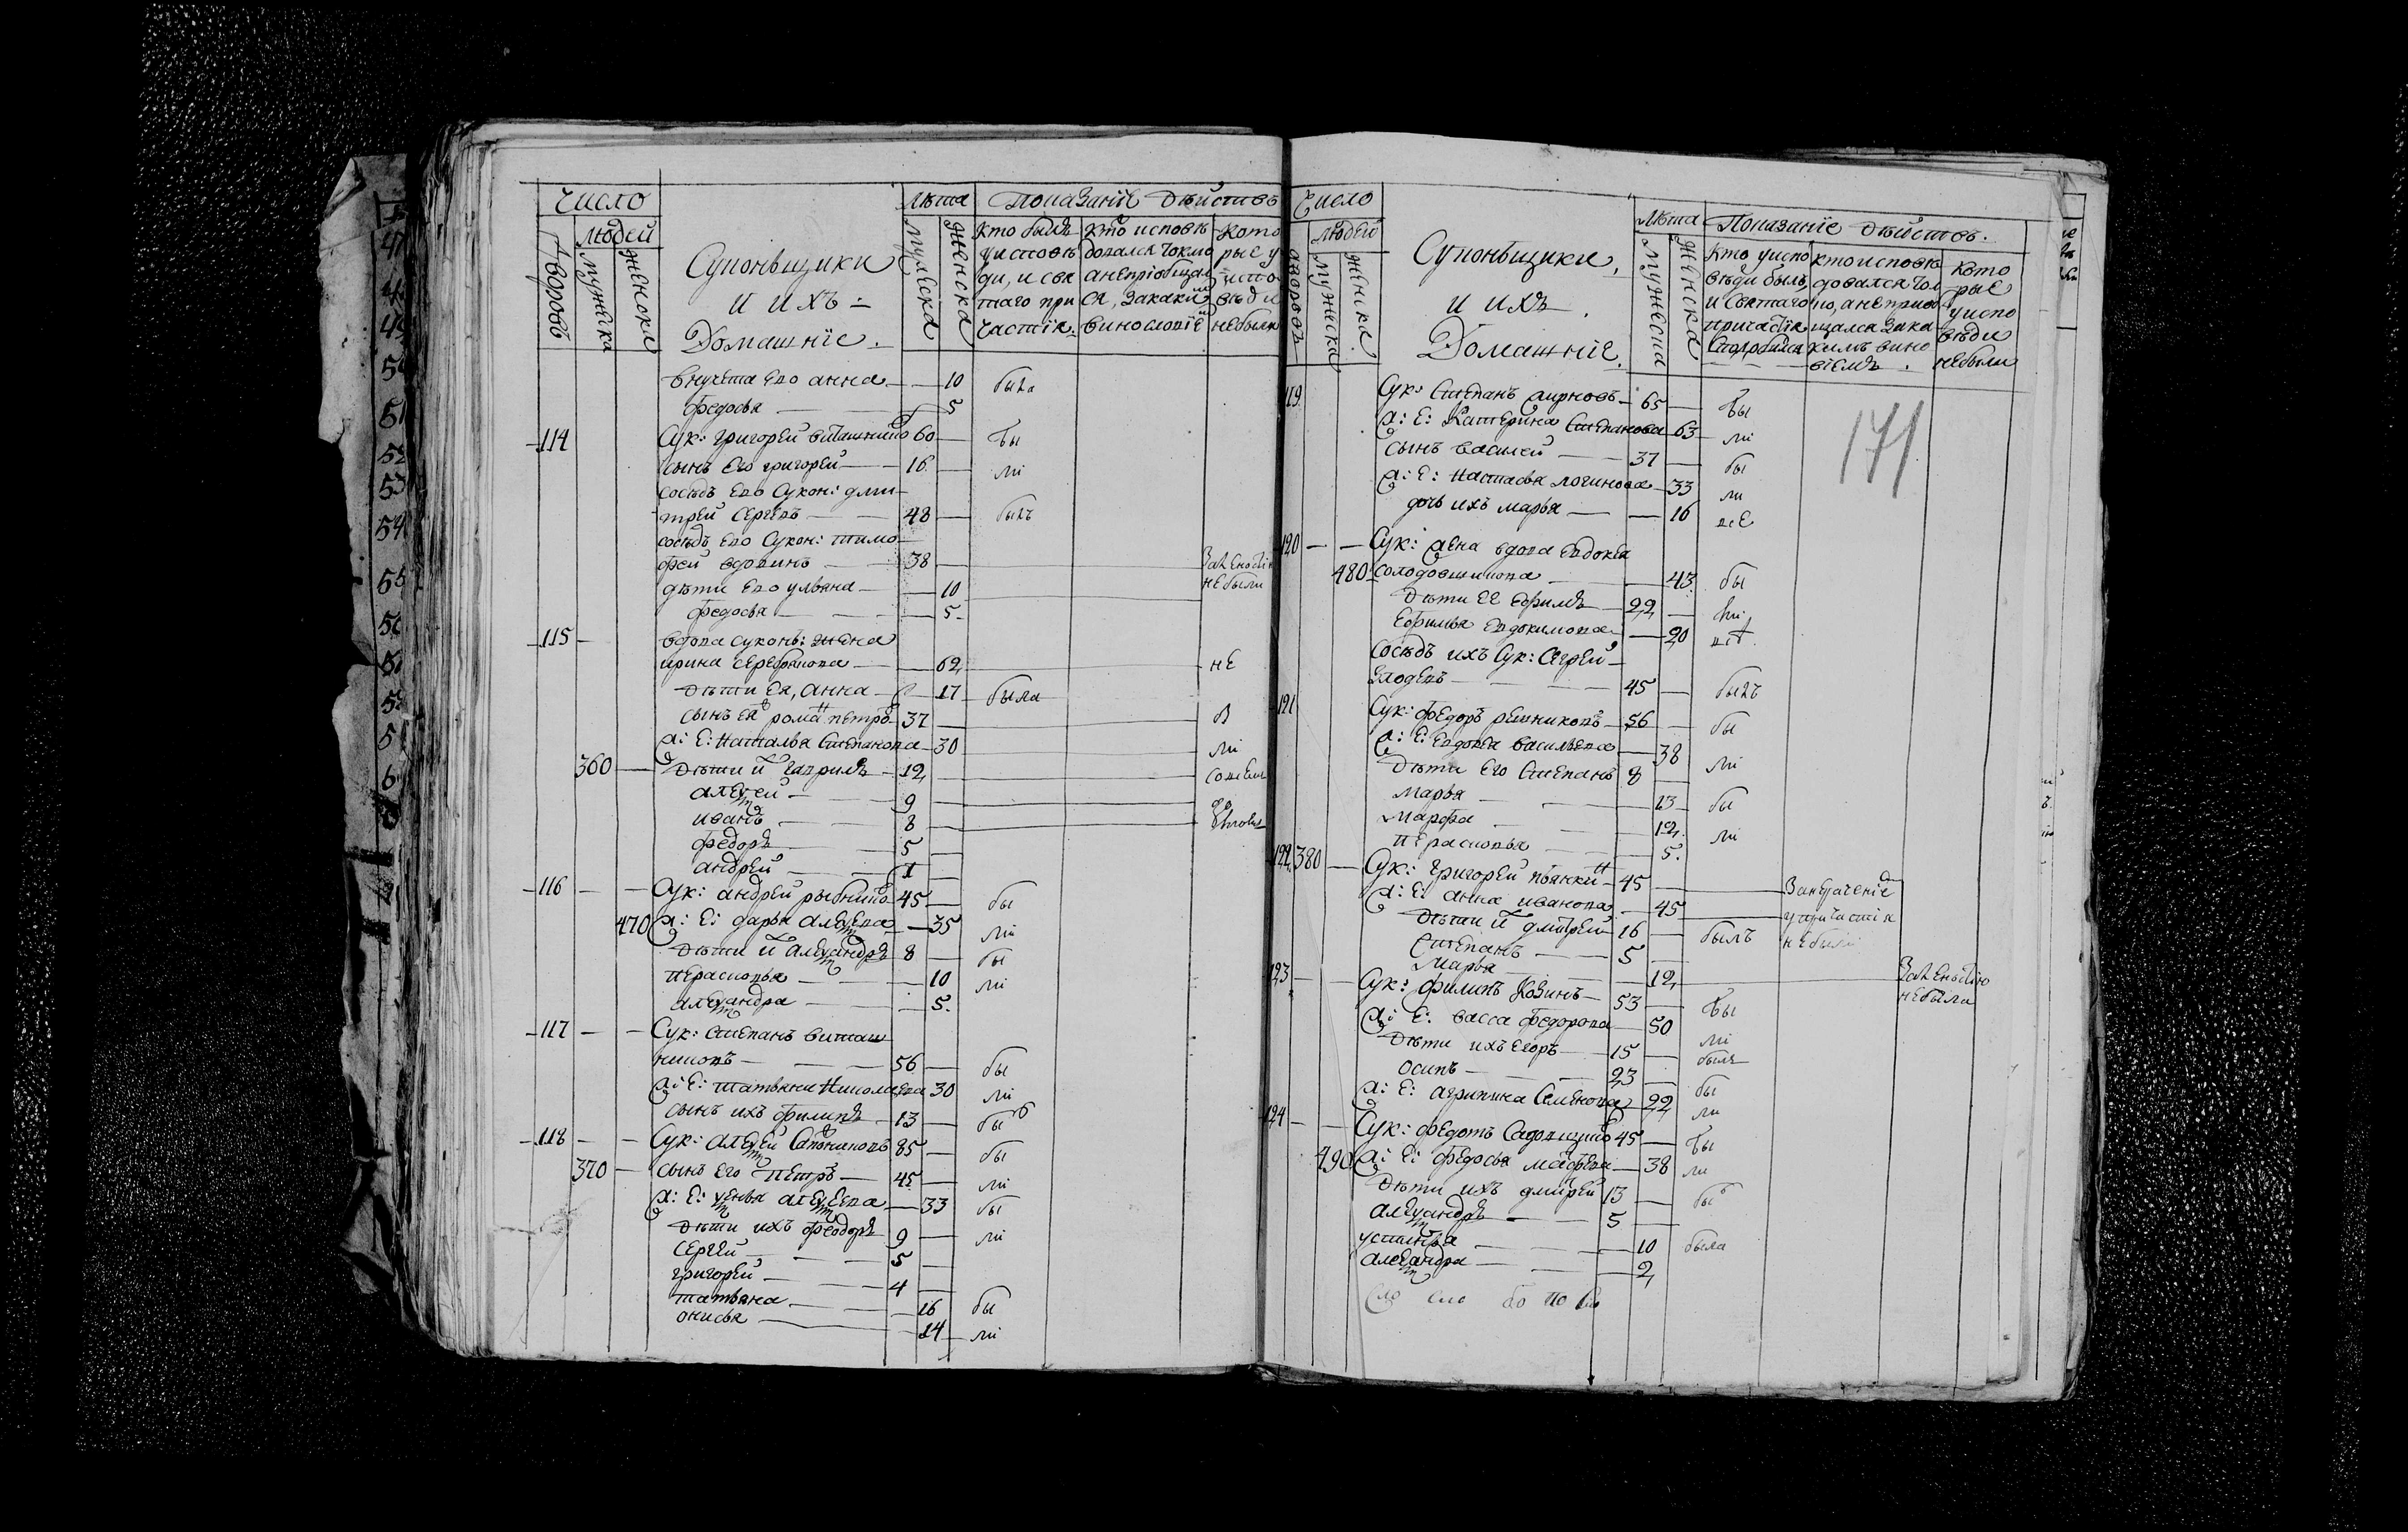 Число
Людей
Дворовъ
Мужеска
Женска
Суконьщики
и ихъ
Домашнїе.
Лѣта
Мужеска
Женска
Показанїе дѣйствъ
Кто былъ
у исповѣ
ди, и свя
таго при
частїя.
Кто исповѣ
довался токмо
а непрїобщал
ся, за каким
винословїем
Кото
рые у
испо
вѣди
небыли
внучета его анна 10 была
федосья 5
114 Сук: григорей 60 бы
сынъ его григорей 16 ли
сосѣдъ его Сукон: дми
трей Сергѣевъ 48 былъ
сосѣдъ его Сукон: тимо
фей вдовинъ 38
дѣти его ульяна 10 небыли
федосья 5
115 вдова суконъ: жена
ирина серебрякова 62 не
дѣти ея, анна 17 была
сынъ ея романъ петровъ 37 б
ж: Е: наталья степанова 30 ли
360 дѣти их гаврилъ 12
алеѯей 9
иванъ 8
федоръ 5
андрей 1
116 Сук: андрей 45 бы
470 ж: Е: дарья алеѯеева 35 ли
дѣти их алеѯандръ 8 бы
парасковья 10 ли
алеѯандра 5
117 Сук: степанъ виташ
никовъ 56 бы
ж: Е: татьяна николаева 30 ли
сынъ ихъ филипъ 13 бы
118 Сук: алеѯей 85 бы
370 сынъ его петръ 45 ли
ж: Е: ѯенья алеѯеева 33 бы
дѣти ихъ феодоръ 9 ли
сергей 5
григорей 4
татьяна 16 бы
анисья 14 ли
Число
Людей
дворовъ
Мужеска
Женска
Суконьщики,
и ихъ
Домашнїе.
Лѣта
Мужеска
Женска
Показанїе дѣйствъ.
Кто у испо
вѣди былъ,
и святаго
причастїя
сподобился
кто исповѣ
довался тол
ко, а неприоб
щался за ка
кимъ вино
вїемъ.
Кото
рые
у испо
вѣди
небыли
171
119 Сук: степанъ 65 бы
ж: Е: катерина степанова 63 ли
сынъ василей 37 бы
ж: Е: настасья логинова 33 ли
дочь ихъ марья 16 все
120 Сук: жена вдова евдокея
480 солодовникова 43 бы
дѣти ее ефимъ 22 ли
евдокимова 20 всѣ
сосѣдъ ихъ Сук: Сергей
45 былъ
121 Сук: федоръ решниковъ 56 бы
ж: Е: евдокея васильева 38 ли
дѣти его степанъ 8
марья 13 бы
марфа 12 ли
парасковья 5
122 380 Сук: григорей 45
ж: Е: анна иванова 45 у причастїя
дѣти их дмитрей 16 былъ небыли
степанъ 5
марья 12
123 Сук: филипъ козинъ 53 бы небыли
ж: Е: васса федорова 50 ли
дѣти ихъ егоръ 15 былъ
осипъ 23 бы
ж: Е: агрипина семенова 22 ли
124 Сук: федотъ 45 бы
490 ж: Е: федосья 38 ли
дѣти ихъ дмитрей 13 бы
алеѯандръ 5
устинья 10 была
алеѯандра 2